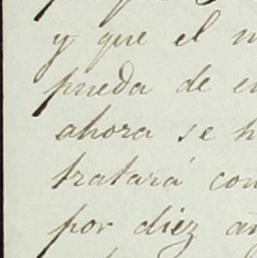 y que el
pueda de
ahora se
tratará con
por diez